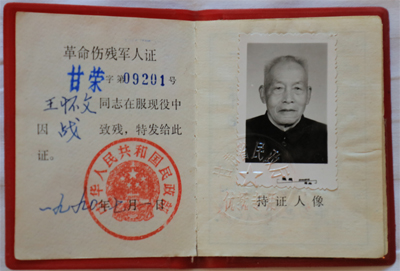 革命伤残军人证
甘荣字第09291号
王怀文同志在服现役中
因战致残，特发给此
证。
中华人民共和国民政部
一九九〇年 月一日
持证人像